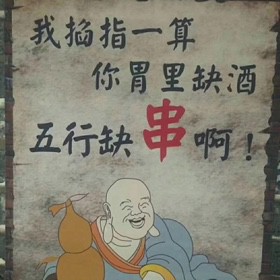 我掐指一算
你胃里缺酒
五行缺串啊！